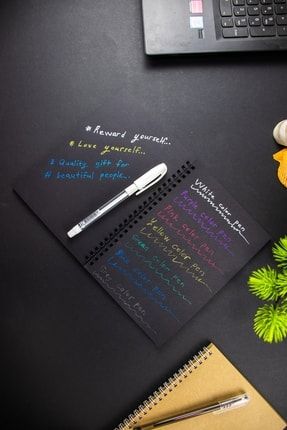 # Reward yourself...
# Love yourself...
# Quality gift for
# beautiful people...
White color pen
Purple color pen
Pink color pen
Yellow color pen
Green color pen
Blue color pen
Grey color pen